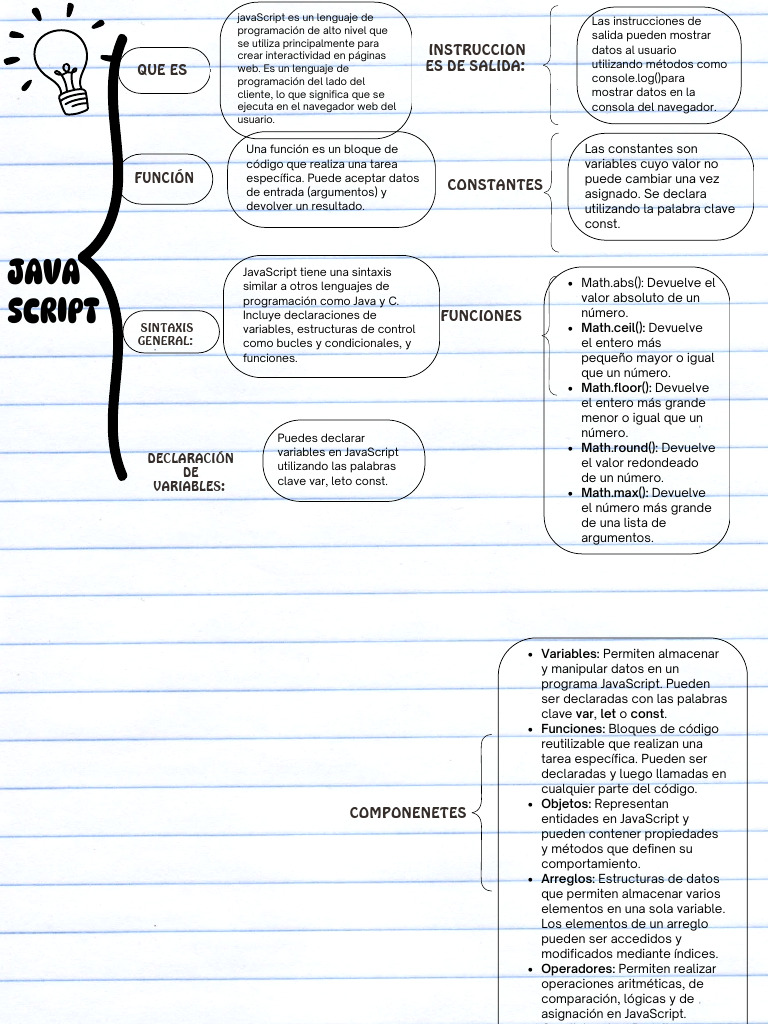 JAVA
SCRIPT
QUE ES
javaScript es un lenguaje de
programación de alto nivel que
se utiliza principalmente para
crear interactividad en páginas
web. Es un lenguaje de
programación del lado del
cliente, lo que significa que se
ejecuta en el navegador web del
usuario.
FUNCIÓN
Una función es un bloque de
código que realiza una tarea
específica. Puede aceptar datos
de entrada (argumentos) y
devolver un resultado.
SINTAXIS
GENERAL:
JavaScript tiene una sintaxis
similar a otros lenguajes de
programación como Java y C.
Incluye declaraciones de
variables, estructuras de control
como bucles y condicionales, y
funciones.
DECLARACIÓN
DE
VARIABLES:
Puedes declarar
variables en JavaScript
utilizando las palabras
clave var, leto const.
INSTRUCCION
ES DE SALIDA:
Las instrucciones de
salida pueden mostrar
datos al usuario
utilizando métodos como
console.log()para
mostrar datos en la
consola del navegador.
CONSTANTES
Las constantes son
variables cuyo valor no
puede cambiar una vez
asignado. Se declara
utilizando la palabra clave
const.
FUNCIONES
• Math.abs(): Devuelve el
valor absoluto de un
número.
• Math.ceil(): Devuelve
el entero más
pequeño mayor o igual
que un número.
• Math.floor(): Devuelve
el entero más grande
menor o igual que un
número.
• Math.round(): Devuelve
el valor redondeado
de un número.
• Math.max(): Devuelve
el número más grande
de una lista de
argumentos.
COMPONENETES
• Variables: Permiten almacenar
y manipular datos en un
programa JavaScript. Pueden
ser declaradas con las palabras
clave var, let o const.
• Funciones: Bloques de código
reutilizable que realizan una
tarea específica. Pueden ser
declaradas y luego llamadas en
cualquier parte del código.
• Objetos: Representan
entidades en JavaScript y
pueden contener propiedades
y métodos que definen su
comportamiento.
• Arreglos: Estructuras de datos
que permiten almacenar varios
elementos en una sola variable.
Los elementos de un arreglo
pueden ser accedidos y
modificados mediante índices.
• Operadores: Permiten realizar
operaciones aritméticas, de
comparación, lógicas y de
asignación en JavaScript.